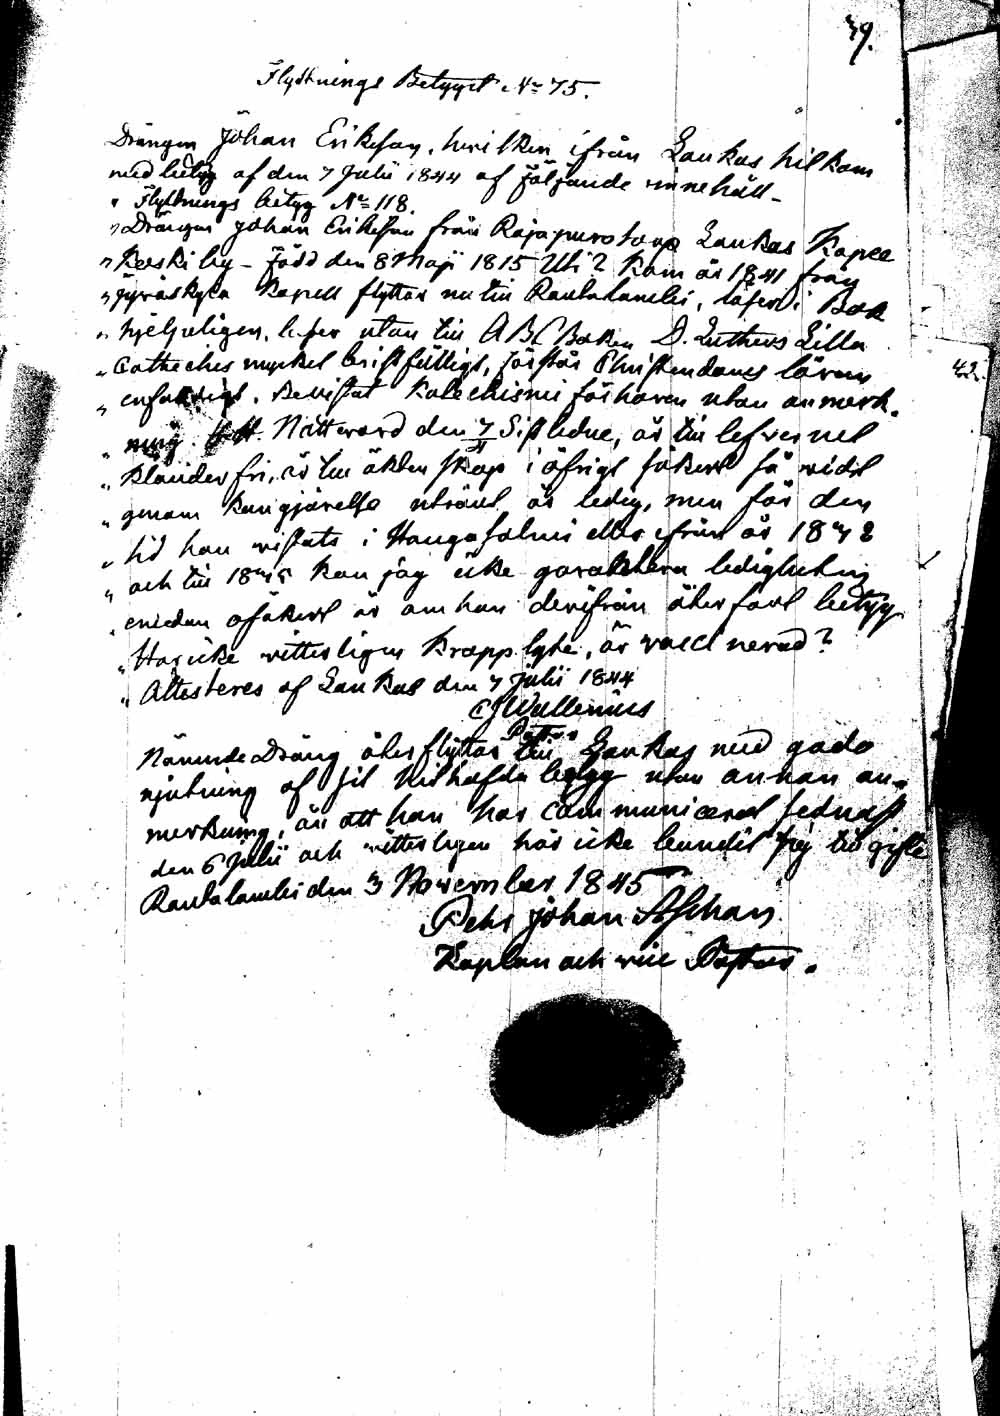 39.
Flyttnings Betyget No 75.
Drängen Johan Eriksson, hvilken ifrån Laukas hitkom
med betyg af den 7 Julii 1844 af följande innehåll –
" Flyttnings betyg No 118.
" Drängen Johan Eriksson från Rajapurotorp Laukas Kapell
" Keski by – född den 8 Maji 1815 Kom år 1841 från
" Jyväskylä Kapell flyttar nu till Rautalambi, läser i Bok
" hjelpeligen, utan till ABC Boken D. Luthers Lilla
" Catheches mycket bristfälligt, förstår Christendoms läran
" enfaldigt. Bevistat Katechismi förhören utan anmerk-
" ning. H.H. Nattvard den 7 Sistledne, är till lefvernet
" Klanderfri, är till äktenskap i öfrigt
" genom kungjörelse utrönt är ledig, men för den
" tid han vistats i Haugasalmi ifrån år 1842
" och till 1843 kan jag icke garantera ledigheten
" emedan osäkert är om han derifrån återfört betyg
" Har icke vitterligen Kroppslyte, är vaccinerad?
" Attesteres af Laukas den 7 Julii 1844
CJ Wallenius
Pastor
Nämnde Dräng återflyttar till Laukas med goda
njutning af sit hithafda betyg utan annan an-
merkning, än att han har communicerat sednast
den 6 Julii och vitterligen här icke bundit sig till gifte
Rautalambi den 3 November 1845
Pehr Johan Aschan
Kaplan och vice Pastor.
42.